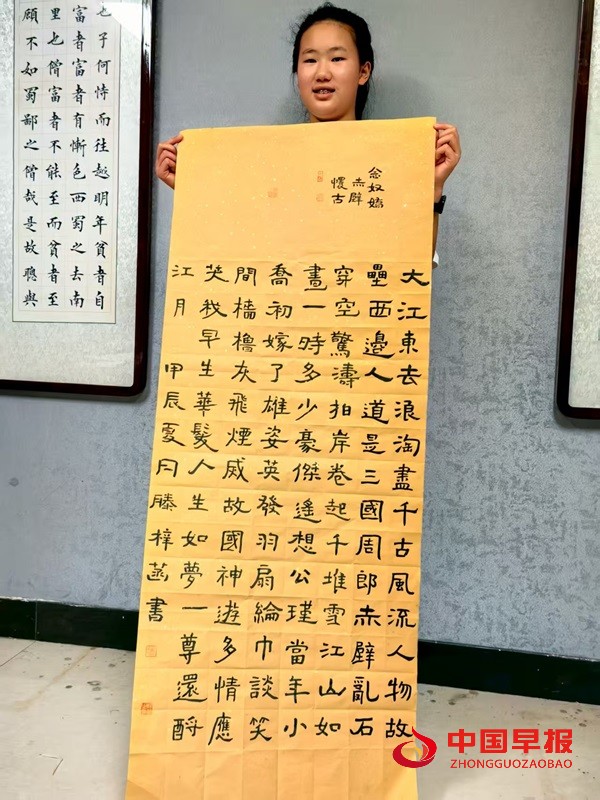 也子何恃而往越明年貧者自
富者富者有慚色西蜀之去南
里也僧富者不能至而貧者至
顧不如蜀鄙之僧哉是故聰與
念奴嬌
赤壁
懷古
大江東去浪淘盡千古風流人物故
壘西邊人道是三國周郎赤壁亂石
穿空驚濤拍岸卷起千堆雪江山如
畫一時多少豪傑遙想公瑾當年小
喬初嫁了雄姿英發羽扇綸巾談笑
間檣櫓灰飛煙滅故國神遊多情應
笑我早生華髮人生如夢一尊還酹
江月 甲辰夏月滕梓菡書
中国早报
ZHONGGUOZAOBAO